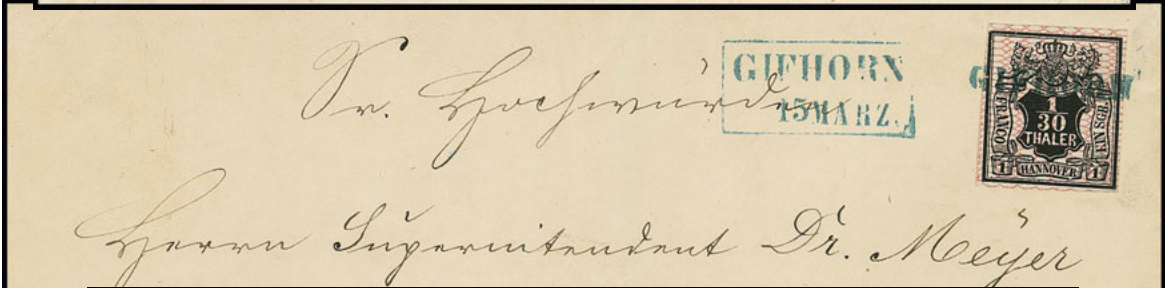 Sr. Hochwürden
GIFHORN
15 MARZ.
GIFHORN
1
30
THALER
FRANCO
EIN SGR.
1 HANNOVER 1
Herrn Superintendent Dr. Meÿer